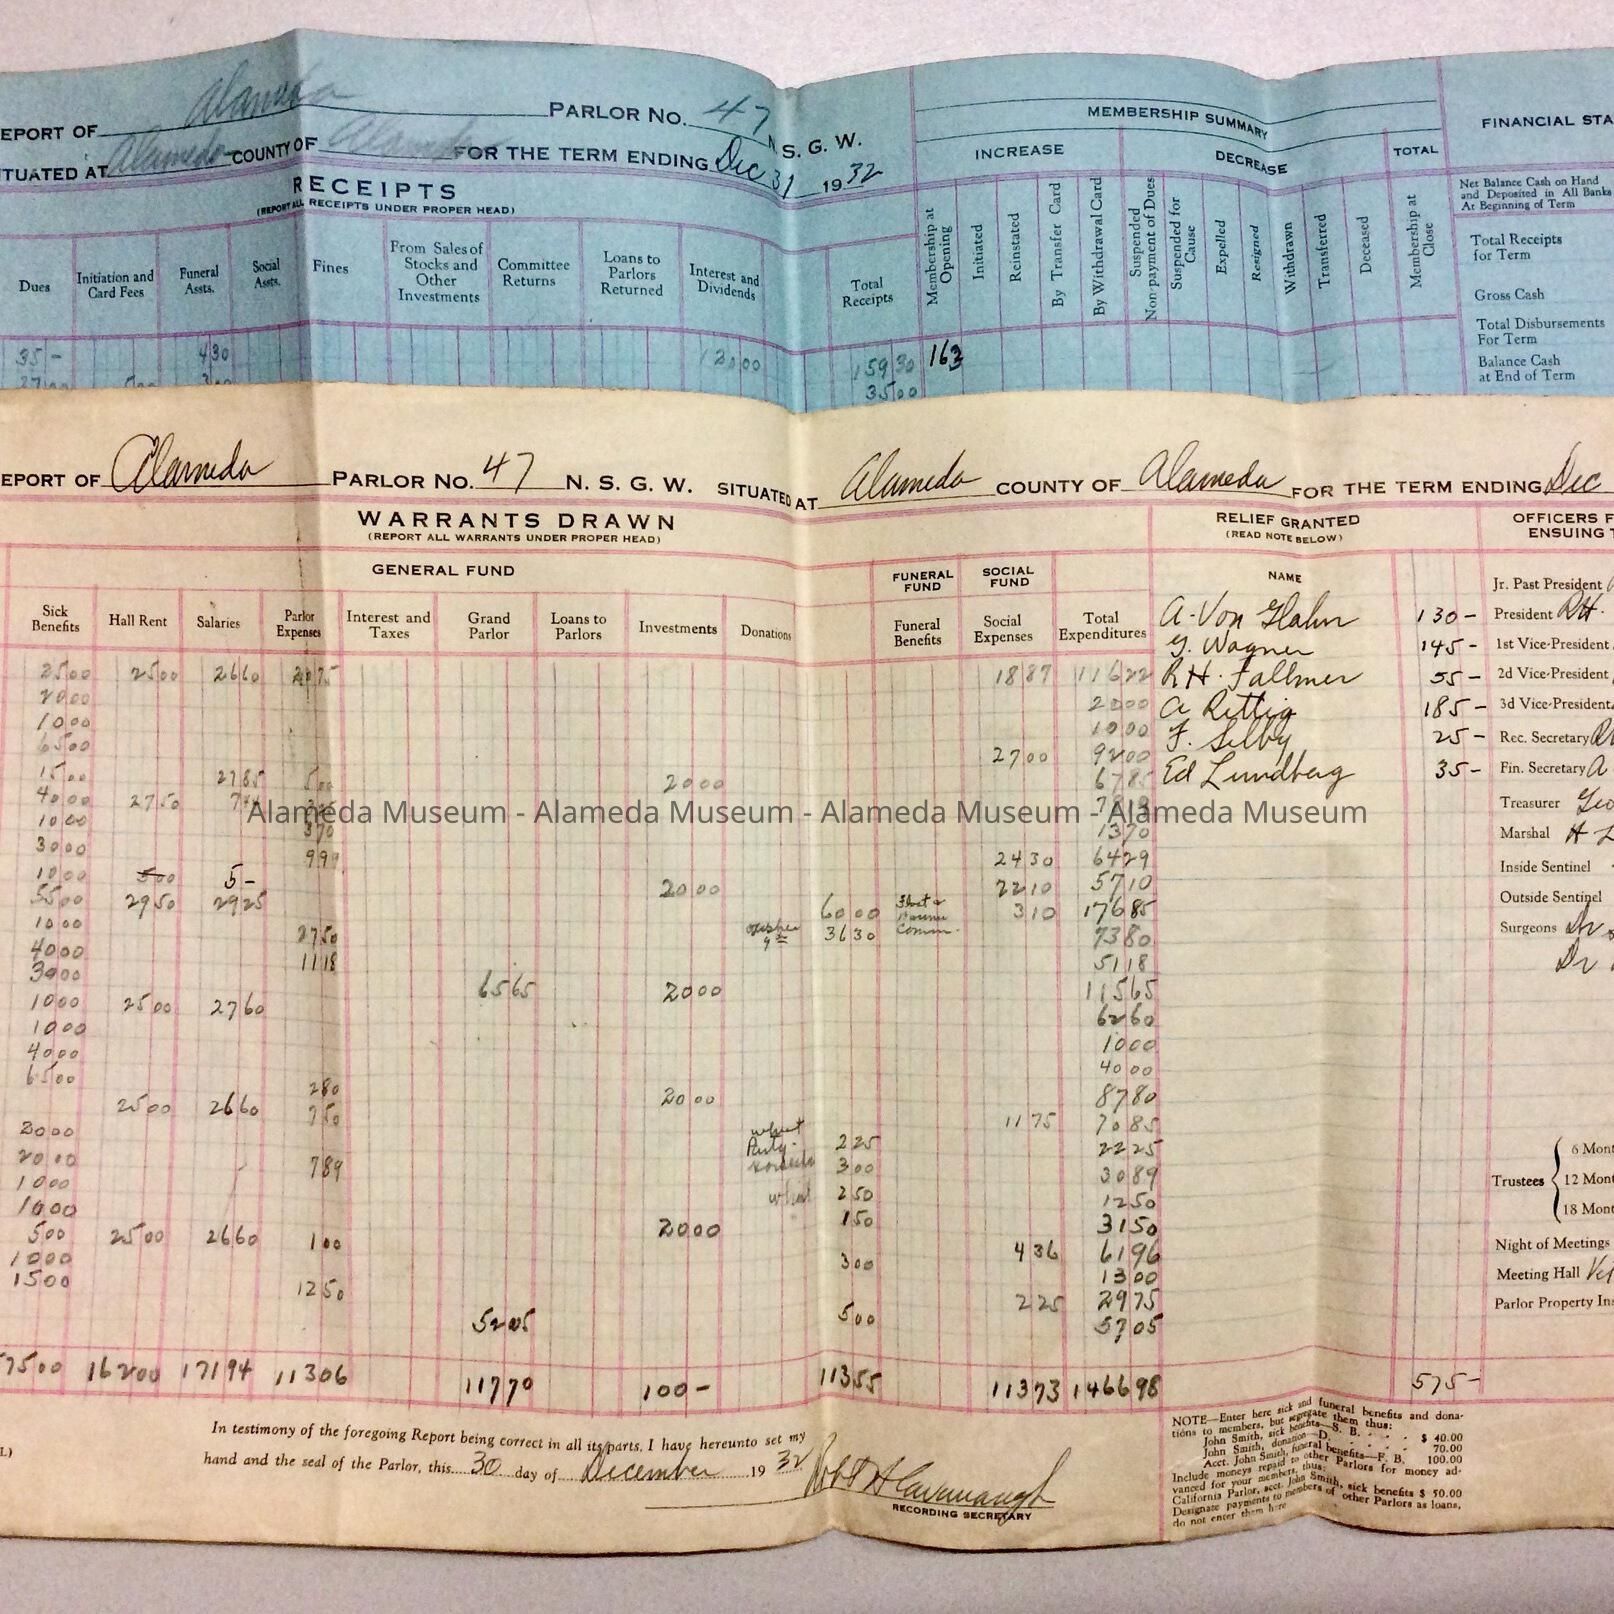 EPORT OF Alameda PARLOR NO. 47 N. S. G. W.
ITUATED AT Alameda COUNTY OF Alameda FOR THE TERM ENDING Dec 31 1932
RECEIPTS
(REPORT ALL RECEIPTS UNDER PROPER HEAD)
MEMBERSHIP SUMMARY
INCREASE DECREASE TOTAL
FINANCIAL STA
Dues
Initiation and Card Fees
Funeral Assts.
Social Assts.
Fines
From Sales of Stocks and Other Investments
Committee Returns
Loans to Parlors Returned
Interest and Dividends
Total Receipts
Membership at Opening
Initiated
Reinstated
By Transfer Card
By Withdrawal Card
Suspended Non-payment of Dues
Suspended for Cause
Expelled
Resigned
Withdrawn
Transferred
Deceased
Membership at Close
Net Balance Cash on Hand
and Deposited in All Banks
At Beginning of Term
Total Receipts
for Term
Gross Cash
Total Disbursements
For Term
Balance Cash
at End of Term
35 - 4 30 120 00 159 30 163
35 00
EPORT OF Alameda PARLOR NO. 47 N. S. G. W. SITUATED AT Alameda COUNTY OF Alameda FOR THE TERM ENDING Dec
WARRANTS DRAWN
(REPORT ALL WARRANTS UNDER PROPER HEAD)
RELIEF GRANTED
(READ NOTE BELOW)
OFFICERS F
ENSUING T
GENERAL FUND
FUNERAL FUND
SOCIAL FUND
NAME
Sick Benefits
Hall Rent
Salaries
Parlor Expenses
Interest and Taxes
Grand Parlor
Loans to Parlors
Investments
Donations
Funeral Benefits
Social Expenses
Total Expenditures
25 00 25 00 26 60 20 75 18 87 116 22
20 00 20 00
10 00 10 00
65 00 27 00 92 00
15 00 27 85 5 00 20 00 67 85
40 00 27 50
10 00 3 70 13 70
30 00 9 99 24 30 64 29
10 00 5 00 5 - 20 00 22 10 57 10
55 00 29 50 29 25 60 00 3 10 176 85
10 00 27 50 36 30 Comm. 73 80
40 00 11 18 51 18
30 00 65 65 20 00 115 65
10 00 25 00 27 60 62 60
10 00 10 00
40 00 40 00
65 00 2 80 20 00 87 80
25 00 26 60 7 50 11 75 70 85
20 00 whist Party 2 25 22 25
20 00 7 89 3 00 30 89
10 00 whist 2 50 12 50
10 00 1 50 31 50
5 00 25 00 26 60 1 00 20 00 4 36 61 96
10 00 3 00 13 00
15 00 12 50 2 25 29 75
52 05 5 00 57 05
75 00 162 00 171 94 113 06 117 70 100 - 113 55 113 73 1466 98
A. Von Hahn 130 -
G. Wagner 145 -
R. H. Fallmer 55 -
A Rittig 185 -
F. Selby 25 -
Ed Lundberg 35 -
575 -
Jr. Past President
President R.H.
1st Vice-President
2d Vice-President
3d Vice-President
Rec. Secretary
Fin. Secretary A
Treasurer Geo
Marshal H L
Inside Sentinel
Outside Sentinel
Surgeons Dr
Dr
Trustees
6 Mont
12 Mont
18 Mont
Night of Meetings
Meeting Hall Vet
Parlor Property Ins
Alameda Museum - Alameda Museum - Alameda Museum - Alameda Museum
In testimony of the foregoing Report being correct in all its parts, I have hereunto set my
L) hand and the seal of the Parlor, this 30 day of December 1932
Robt H Cavanaugh
RECORDING SECRETARY
NOTE—Enter here sick and funeral benefits and dona-
tions to members, but segregate them thus:
John Smith, sick benefits—S. B. $ 40.00
John Smith, donation—D. 70.00
Acct. John Smith, funeral benefits—F. B. 100.00
Include moneys repaid to other Parlors for money ad-
vanced for your members, thus:
California Parlor, acct. John Smith, sick benefits $ 50.00
Designate payments to members of other Parlors as loans,
do not enter them here